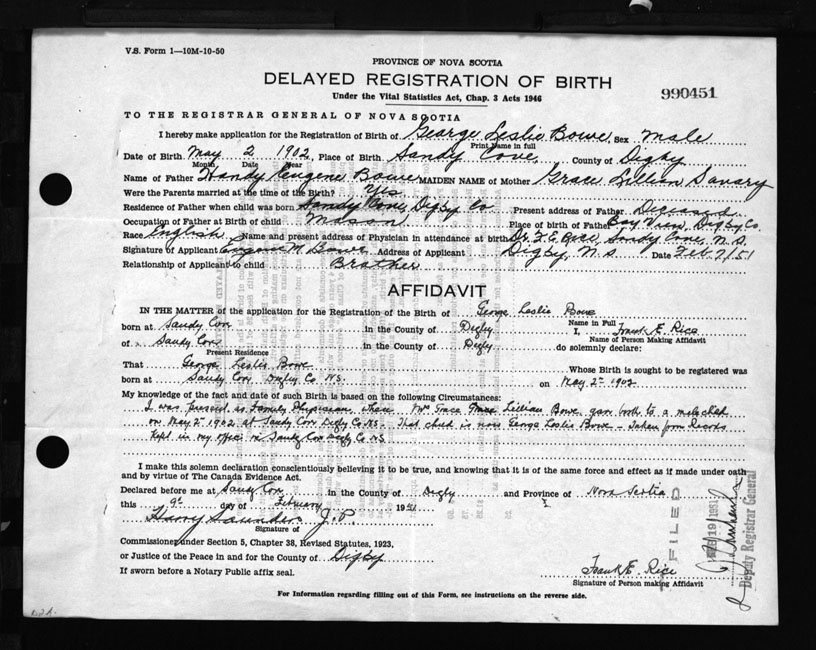 V.S. Form 1—10M-10-50
PROVINCE OF NOVA SCOTIA
DELAYED REGISTRATION OF BIRTH
990451
Under the Vital Statistics Act, Chap. 3 Acts 1946
TO THE REGISTRAR GENERAL OF NOVA SCOTIA
I hereby make application for the Registration of Birth of George Leslie Bowe, Sex Male
Print Name in full
Date of Birth May 2, 1902, Place of Birth Sandy Cove, County of Digby
Month Day Year
Name of Father Handy Eugene Bowe MAIDEN NAME of Mother Grace Lillian Savary
Were the Parents married at the time of the Birth? Yes
Residence of Father when child was born Sandy Cove, Digby Co Present address of Father Deceased
Occupation of Father at Birth of child Mason Place of birth of Father Bay View, Digby Co.
Race English Name and present address of Physician in attendance at birth Dr. F. E. Rice, Sandy Cove, N.S.
Signature of Applicant Eugene M. Bowe Address of Applicant Digby, N.S. Date Feb 7/51
Relationship of Applicant to child Brother
AFFIDAVIT
IN THE MATTER of the application for the Registration of the Birth of George Leslie Bowe
Name in Full
born at Sandy Cove in the County of Digby I, Frank E. Rice
Name of Person Making Affidavit
of Sandy Cove in the County of Digby do solemnly declare:
Present Residence
That George Leslie Bowe Whose Birth is sought to be registered was
born at Sandy Cove Digby Co NS. on May 2nd 1902
My knowledge of the fact and date of such Birth is based on the following Circumstances:
I was present as Family Physician when Mrs Grace Lillian Bowe gave birth to a male child
on May 2nd 1902 at Sandy Cove Digby Co NS. That child is now George Leslie Bowe – Taken from Records
Kept in my office in Sandy Cove Digby Co NS
I make this solemn declaration conscientiously believing it to be true, and knowing that it is of the same force and effect as if made under oath
and by virtue of The Canada Evidence Act.
Declared before me at Sandy Cove in the County of Digby and Province of Nova Scotia
this 9th day of February 1951
Harry Saunders J.P.
Signature of
Commissioner under Section 5, Chapter 38, Revised Statutes, 1923,
or Justice of the Peace in and for the County of Digby
If sworn before a Notary Public affix seal.
Frank E. Rice
Signature of Person making Affidavit
For Information regarding filling out of this Form, see instructions on the reverse side.
FILED
FEB 19 1951
Deputy Registrar General